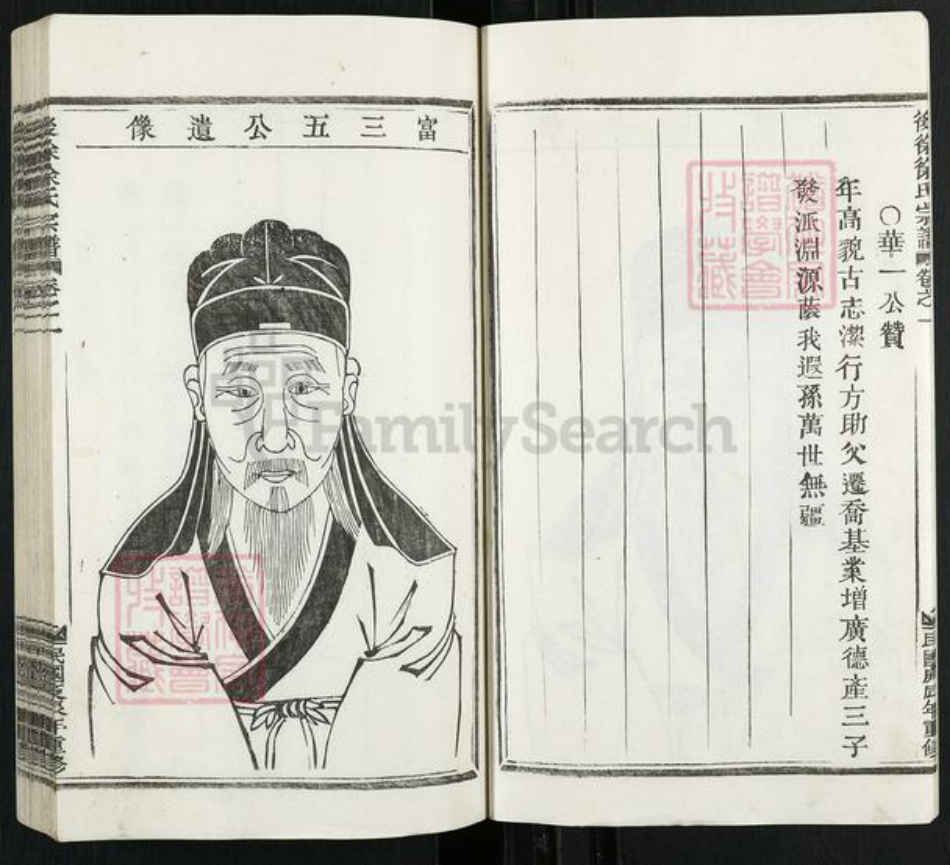 後徐徐氏宗譜 卷之一
○華一公贊
年高貌古志潔行方助父遷喬基業增廣德產三子
發派淵源蔭我遐孫萬世無疆
富三五公遺像
FamilySearch